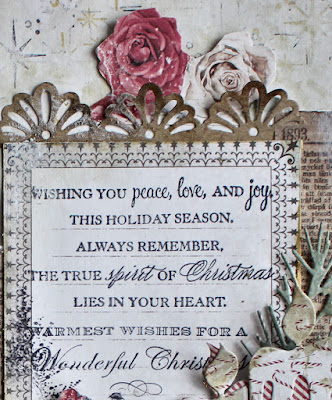 1893
WISHING YOU peace, love, AND joy
THIS HOLIDAY SEASON.
ALWAYS REMEMBER,
THE TRUE spirit OF Christmas
LIES IN YOUR HEART.
WARMEST WISHES FOR A
Wonderful Christmas